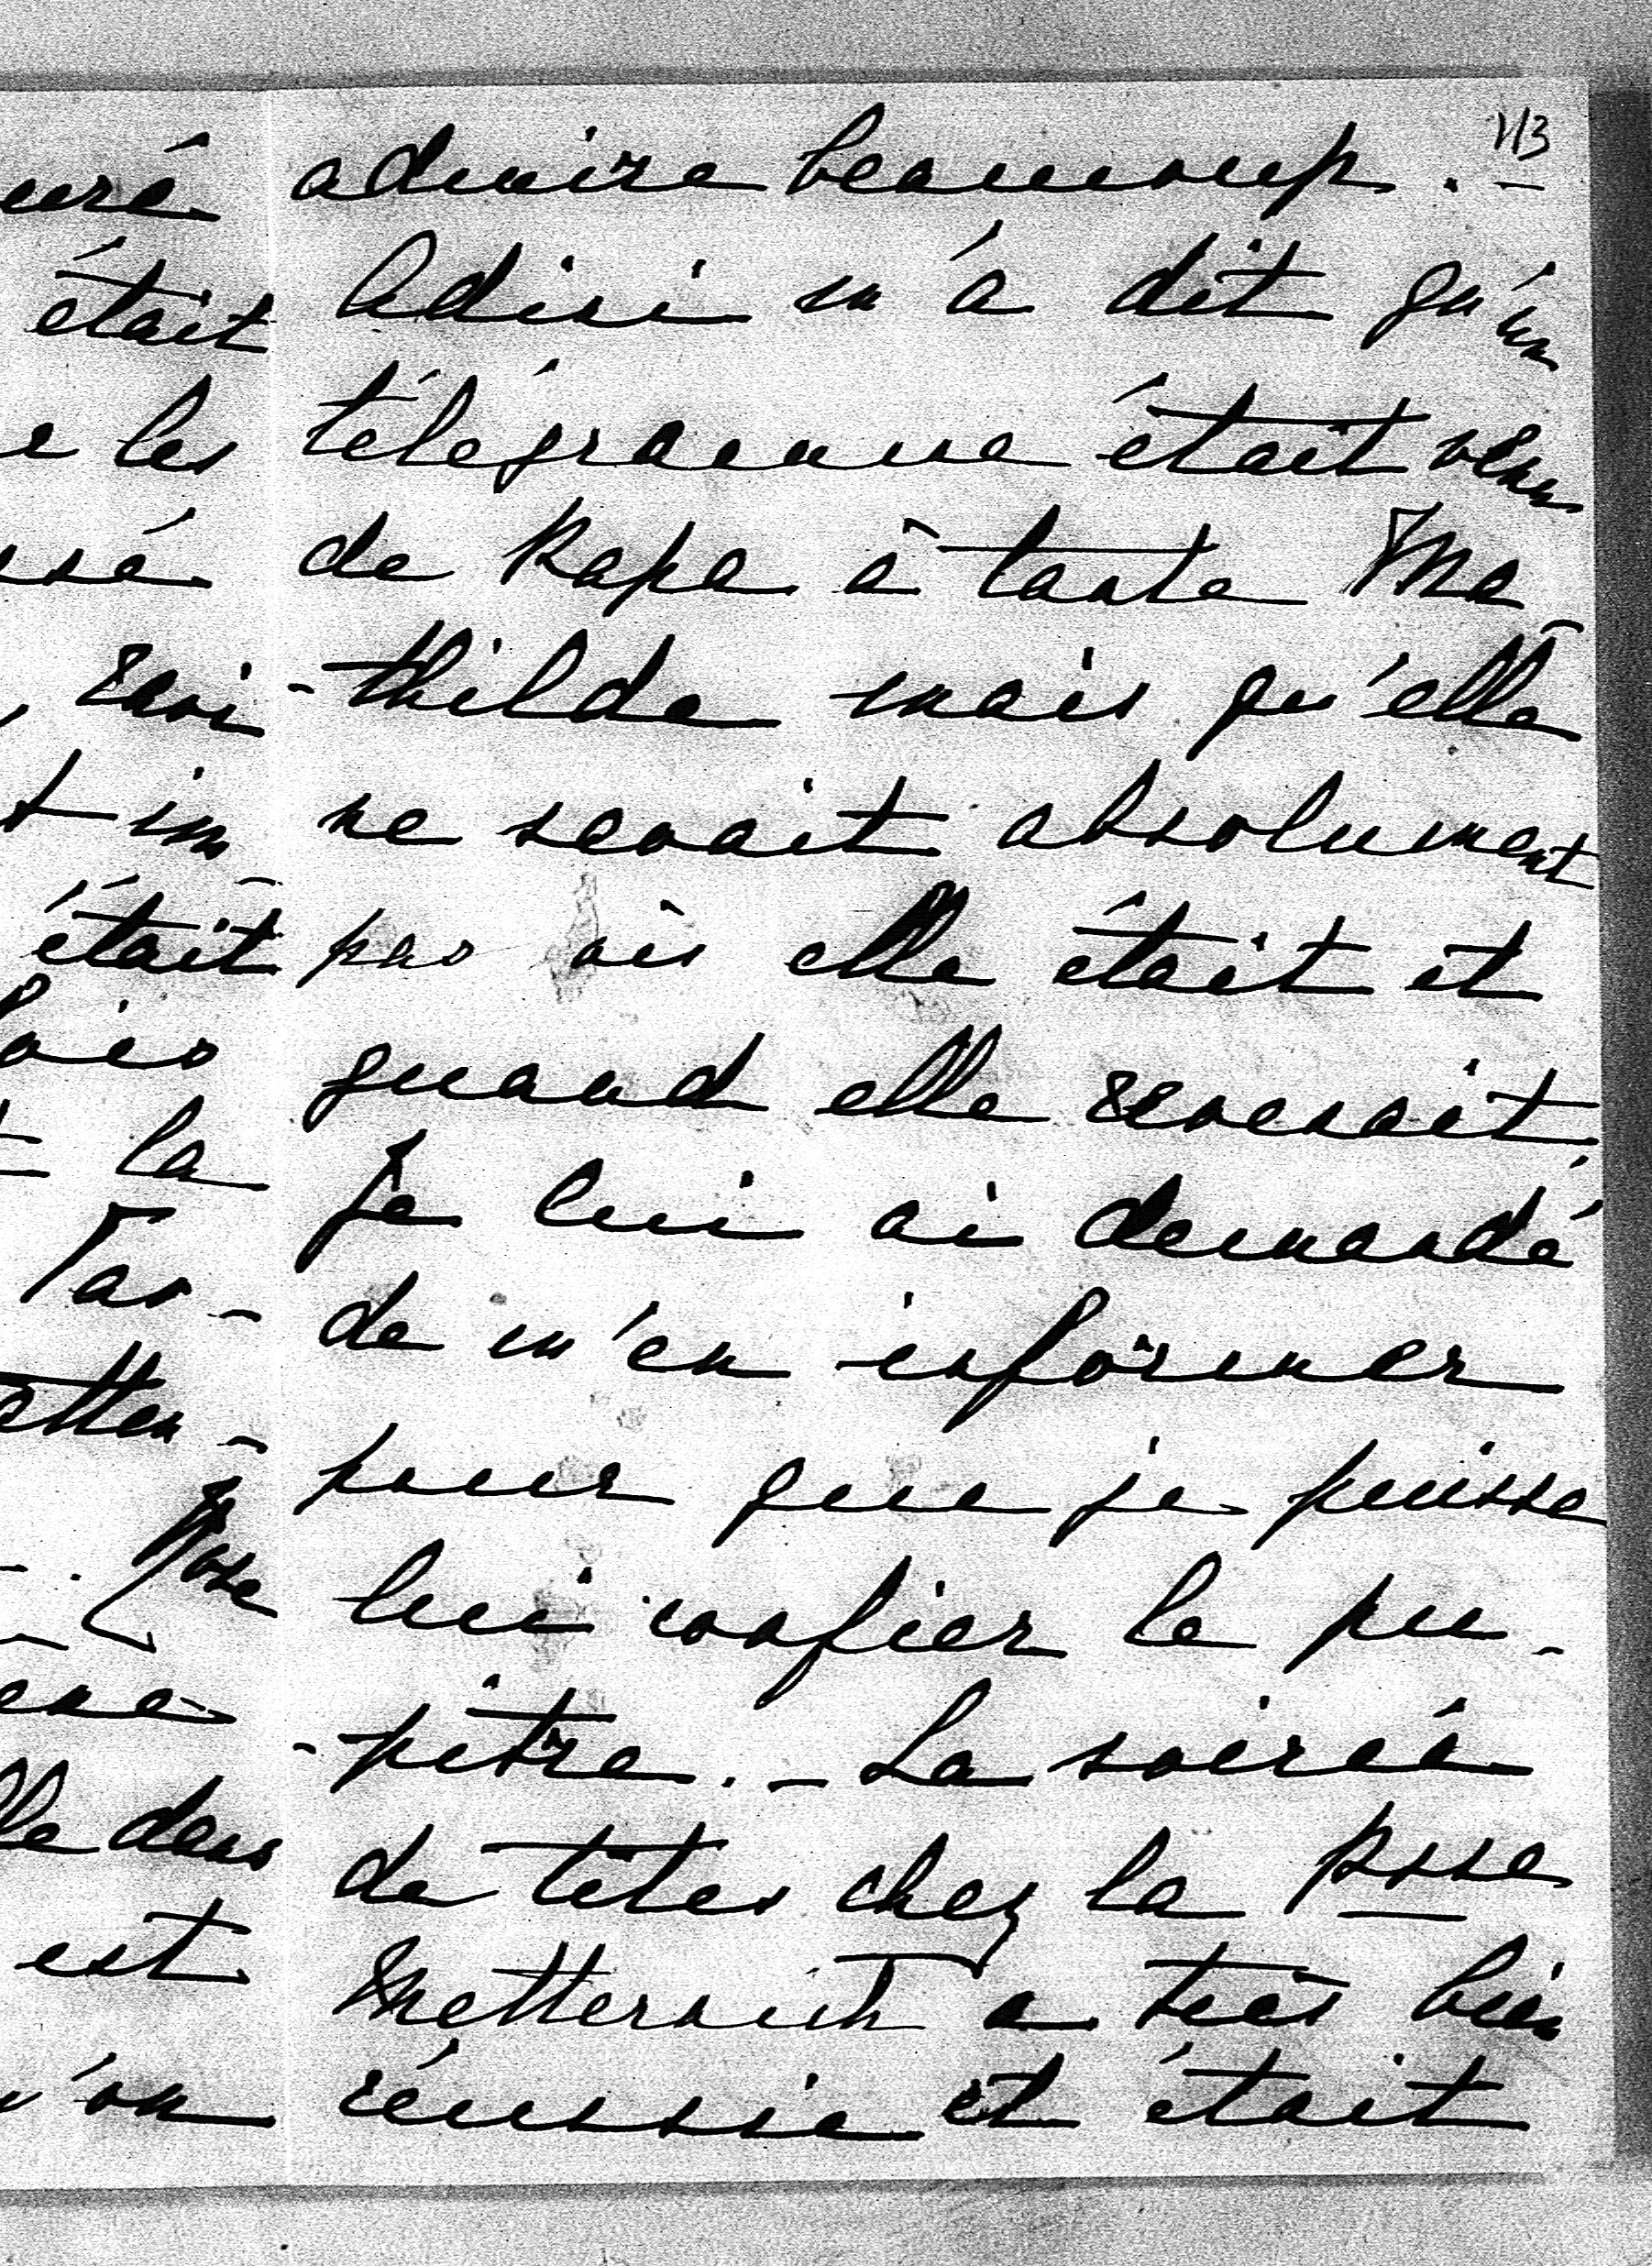 113
admire beaucoup. –
Adini m'a dit qu'un
télégramme était venu
de Papa à tante Ma-
-thilde mais qu'elle
ne savait absolument
pas où elle était et
quand elle revenait.
Je lui ai demandé
de m'en informer
pour que je puisse
lui confier le pu-
-pitre. – La soirée
de têtes chez la Psse
Metternich a très bien
réussie et était
était
les
était
la
dans
est